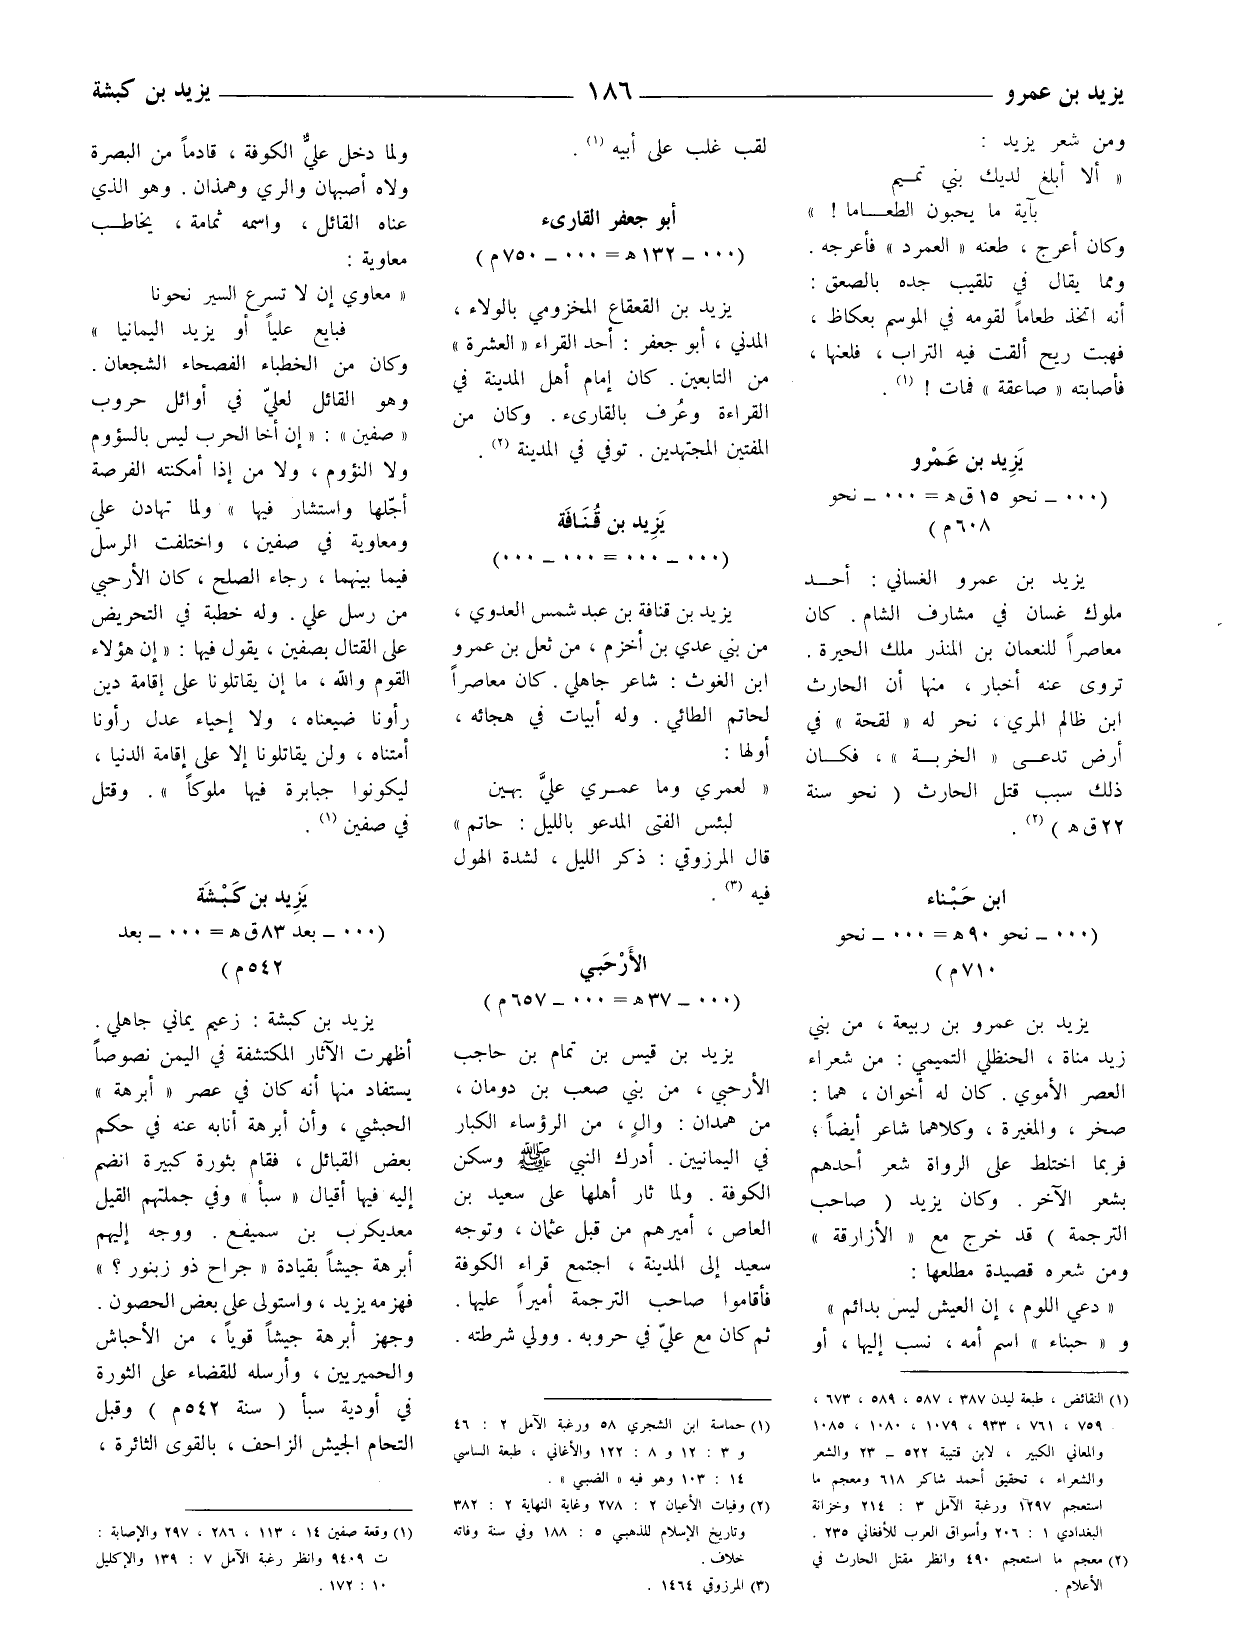 يزيد بن عمرو ١٨٦ يزيد بن كبشة
ومن شعر يزيد :
« ألا أبلغ لديك بني تميم
بآية ما يحبون الطعاما ! »
وكان أعرج ، طعنه « العمرد » فأعرجه .
ومما يقال في تلقيب جده بالصعق :
أنه اتخذ طعاماً لقومه في الموسم بعكاظ ،
فهبت ريح ألقت فيه التراب ، فلعنها ،
فأصابته « صاعقة » فمات ! (١) .
يَزِيد بن عَمْرو
(٠٠٠ ــ نحو ١٥ ق ه‍ = ٠٠٠ ــ نحو
٦٠٨ م)
يزيد بن عمرو الغساني : أحد
ملوك غسان في مشارف الشام . كان
معاصراً للنعمان بن المنذر ملك الحيرة .
تروى عنه أخبار ، منها أن الحارث
ابن ظالم المري ، نحر له « لقحة » في
أرض تدعى « الخربة » ، فكان
ذلك سبب قتل الحارث ( نحو سنة
٢٢ ق ه‍ ) (٢) .
ابن حَبْناء
(٠٠٠ ــ نحو ٩٠ ه‍ = ٠٠٠ ــ نحو
٧١٠ م)
يزيد بن عمرو بن ربيعة ، من بني
زيد مناة ، الحنظلي التميمي : من شعراء
العصر الأموي . كان له أخوان ، هما :
صخر ، والمغيرة ، وكلاهما شاعر أيضاً ؛
فربما اختلط على الرواة شعر أحدهم
بشعر الآخر . وكان يزيد ( صاحب
الترجمة ) قد خرج مع « الأزارقة »
ومن شعره قصيدة مطلعها :
« دعي اللوم ، إن العيش ليس بدائم »
و « حبناء » اسم أمه ، نسب إليها ، أو
(١) النقائض ، طبعة ليدن ٣٨٧ ، ٥٨٧ ، ٥٨٩ ، ٦٧٣ ،
٧٥٩ ، ٧٦١ ، ٩٣٣ ، ١٠٧٩ ، ١٠٨٠ ، ١٠٨٥
والمعاني الكبير ، لابن قتيبة ٥٢٢ ــ ٢٣ والشعر
والشعراء ، تحقيق أحمد شاكر ٦١٨ ومعجم ما
استعجم ١٢٩٧ ورغبة الآمل ٣ : ٢١٤ وخزانة
البغدادي ١ : ٢٠٦ وأسواق العرب للأفغاني ٢٣٥ .
(٢) معجم ما استعجم ٤٩٠ وانظر مقتل الحارث في
الأعلام .
لقب غلب على أبيه (١) .
أبو جعفر القارىء
(٠٠٠ ــ ١٣٢ ه‍ = ٠٠٠ ــ ٧٥٠ م)
يزيد بن القعقاع المخزومي بالولاء ،
المدني ، أبو جعفر : أحد القراء « العشرة »
من التابعين . كان إمام أهل المدينة في
القراءة وعُرف بالقارىء . وكان من
المفتين المجتهدين . توفي في المدينة (٢) .
يَزِيد بن قُنَافَة
(٠٠٠ ــ ٠٠٠ = ٠٠٠ ــ ٠٠٠)
يزيد بن قنافة بن عبد شمس العدوي ،
من بني عدي بن أخزم ، من ثعل بن عمرو
ابن الغوث : شاعر جاهلي . كان معاصراً
لحاتم الطائي . وله أبيات في هجائه ،
أولها :
« لعمري وما عمري عليَّ بهين
لبئس الفتى المدعو بالليل : حاتم »
قال المرزوقي : ذكر الليل ، لشدة الهول
فيه (٣) .
الأَرْحَبي
(٠٠٠ ــ ٣٧ ه‍ = ٠٠٠ ــ ٦٥٧ م)
يزيد بن قيس بن تمام بن حاجب
الأرحبي ، من بني صعب بن دومان ،
من همدان : والٍ ، من الرؤساء الكبار
في اليمانيين . أدرك النبي ﷺ وسكن
الكوفة . ولما ثار أهلها على سعيد بن
العاص ، أميرهم من قبل عثمان ، وتوجه
سعيد إلى المدينة ، اجتمع قراء الكوفة
فأقاموا صاحب الترجمة أميراً عليها .
ثم كان مع عليّ في حروبه . وولي شرطته .
(١) حماسة ابن الشجري ٥٨ ورغبة الآمل ٢ : ٤٦
و ٣ : ١٢ و ٨ : ١٢٢ والأغاني ، طبعة الساسي
١٤ : ١٠٣ وهو فيه « الضبي » .
(٢) وفيات الأعيان ٢ : ٢٧٨ وغاية النهاية ٢ : ٣٨٢
وتاريخ الإسلام للذهبي ٥ : ١٨٨ وفي سنة وفاته
خلاف .
(٣) المرزوقي ١٤٦٤ .
ولما دخل عليٌّ الكوفة ، قادماً من البصرة
ولاه أصبهان والري وهمذان . وهو الذي
عناه القائل ، واسمه ثمامة ، يخاطب
معاوية :
« معاوي إن لا تسرع السير نحونا
فبايع علياً أو يزيد اليمانيا »
وكان من الخطباء الفصحاء الشجعان .
وهو القائل لعليّ في أوائل حروب
« صفين » : « إن أخا الحرب ليس بالسؤوم
ولا النؤوم ، ولا من إذا أمكنته الفرصة
أجّلها واستشار فيها » ولما تهادن علي
ومعاوية في صفين ، واختلفت الرسل
فيما بينهما ، رجاء الصلح ، كان الأرحبي
من رسل علي . وله خطبة في التحريض
على القتال بصفين ، يقول فيها : « إن هؤلاء
القوم والله ، ما إن يقاتلونا على إقامة دين
رأونا ضيعناه ، ولا إحياء عدل رأونا
أمتناه ، ولن يقاتلونا إلا على إقامة الدنيا ،
ليكونوا جبابرة فيها ملوكاً » . وقتل
في صفين (١) .
يَزِيد بن كَبْشَة
(٠٠٠ ــ بعد ٨٣ ق ه‍ = ٠٠٠ ــ بعد
٥٤٢ م)
يزيد بن كبشة : زعيم يماني جاهلي .
أظهرت الآثار المكتشفة في اليمن نصوصاً
يستفاد منها أنه كان في عصر « أبرهة »
الحبشي ، وأن أبرهة أنابه عنه في حكم
بعض القبائل ، فقام بثورة كبيرة انضم
إليه فيها أقيال « سبأ » وفي جملتهم القيل
معديكرب بن سميفع . ووجه إليهم
أبرهة جيشاً بقيادة « جراح ذو زبنور ؟ »
فهزمه يزيد ، واستولى على بعض الحصون .
وجهز أبرهة جيشاً قوياً ، من الأحباش
والحميريين ، وأرسله للقضاء على الثورة
في أودية سبأ ( سنة ٥٤٢ م ) وقبل
التحام الجيش الزاحف ، بالقوى الثائرة ،
(١) وقعة صفين ١٤ ، ١١٣ ، ٢٨٦ ، ٢٩٧ والإصابة :
ت ٩٤٠٩ وانظر رغبة الآمل ٧ : ١٣٩ والإكليل
١٠ : ١٧٢ .